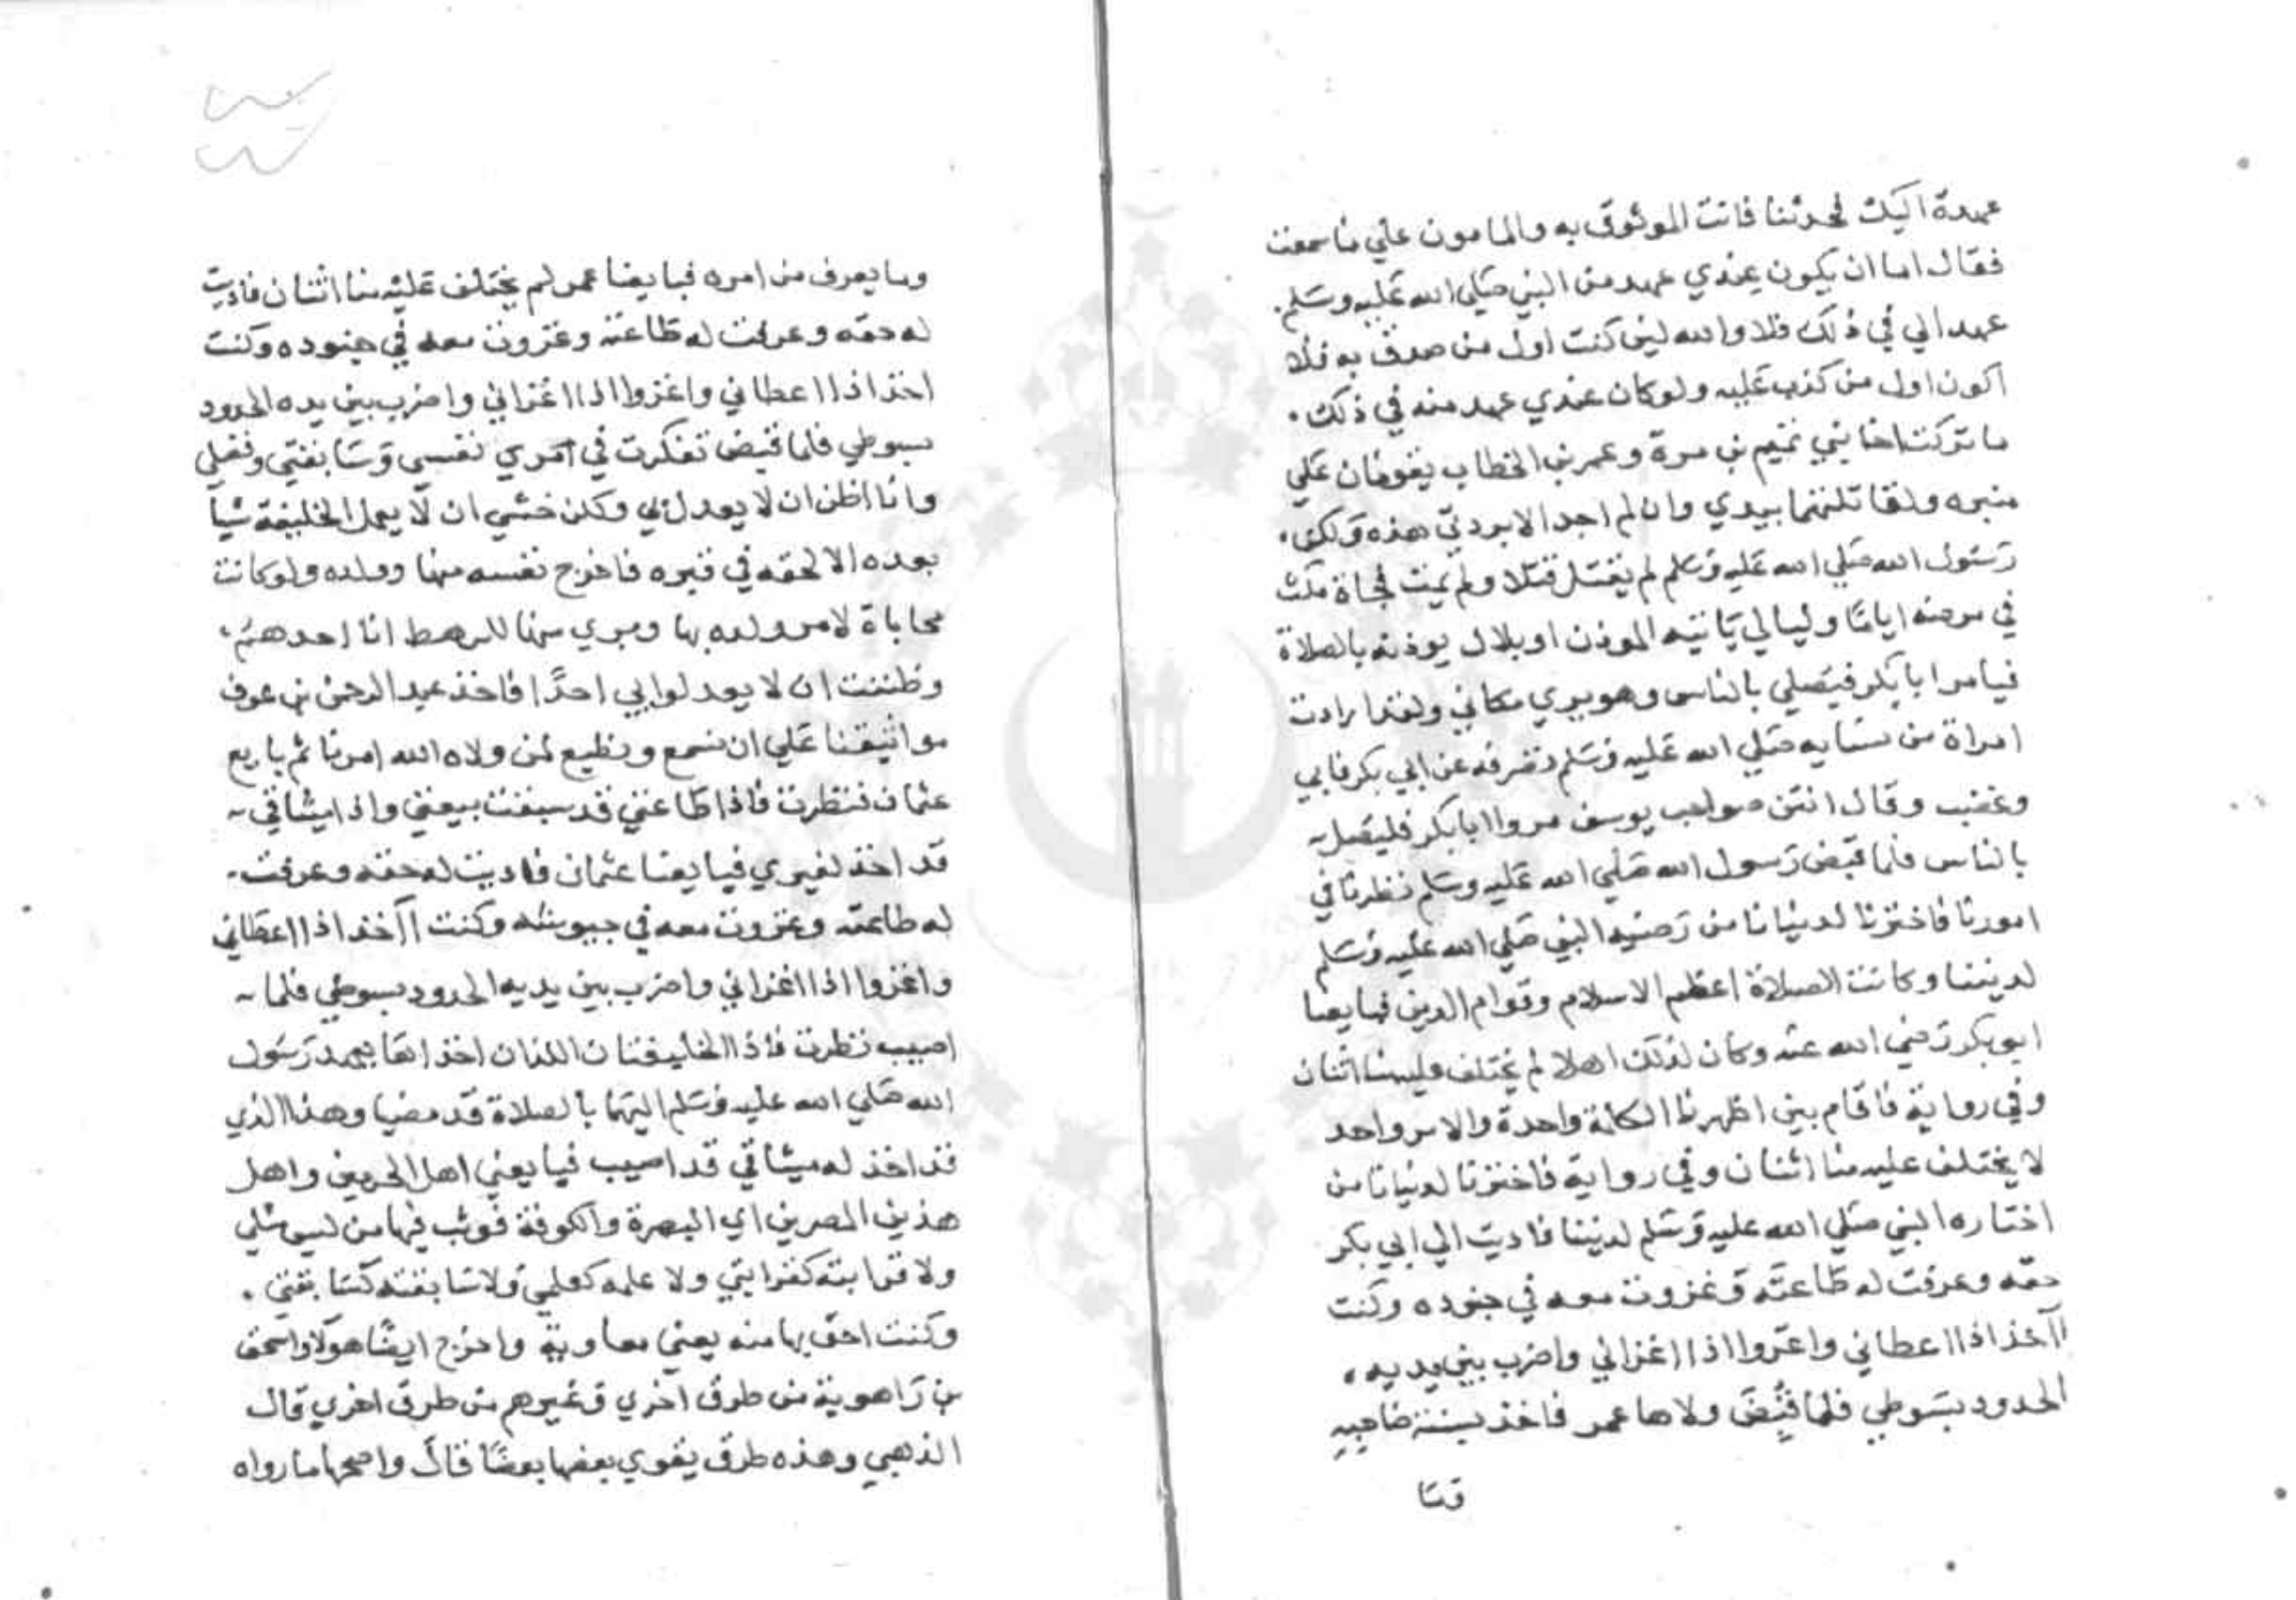 عهدة اليك فحدثنا فانت الموثوق به والمامون علي ما سمعت
فقال اما ان يكون عندي عهد من النبي صلي الله عليه وسلم.
عهد الي في ذلك فلا والله لين كنت اول من صدق به فلا
اكون اول من كذب عليه ولو كان عندي عهد منه في ذلك.
ما تركت اخا بني تميم بن مرة وعمر بن الخطاب يقومان علي
منبره ولقاتلتهما بيدي وان لم اجد الا بردتي هذه ولكن،
رسول الله صلي الله عليه وسلم لم يقتل قتلا ولم يمت فجاة مكث
في مرضه اياما وليالي ياتيه الموذن او بلال يوذنه بالصلاة
فيامر ابا بكر فيصلي بالناس وهو يري مكاني ولقد ارادت
امراة من نسايه صلي الله عليه وسلم تصرفه عن ابي بكر فابي
وغضب وقال انتن صواحب يوسف مروا ابا بكر فليصل
بالناس فلما قبض رسول الله صلي الله عليه وسلم نظرنا في
امورنا فاخترنا لدنيانا من رضيه النبي صلي الله عليه وسلم
لديننا وكانت الصلاة اعظم الاسلام وقوام الدين فبايعنا
ابو بكر رضي الله عنه وكان لذلك اهلا لم يختلف عليه منا اثنان
وفي رواية فاقام بين اظهرنا الكلمة واحدة والامر واحد
لا يختلف عليه منا اثنان وفي رواية فاخترنا لدنيانا من
اختاره النبي صلي الله عليه وسلم لديننا فاديت الي ابي بكر
حقه وعرفت له طاعته وغزوت معه في جنوده وكنت
اآخذ اذا اعطاني واغزوا اذا اغزاني واضرب بين يديه،
الحدود بسوطي فلما قُبِضَ ولاها عمر فاخذ بسنة صاحبه
وما
وما يعرف من امره فبايعنا عمر لم يختلف عليه منا اثنان فاديت
له حقه وعرفت له طاعته وغزوت معه في جنوده وكنت
اخذ اذا اعطاني واغزوا اذا اغزاني واضرب بين يده الحدود
بسوطي فلما قبض تفكرت في امري نفسي وسابقتي وفضلي
وانا اظن ان لا يعدل بي ولكن خشي ان لا يعمل الخليفة شيا
بعده الا لحقه في قبره فاخرج نفسه منها وولده ولو كانت
محاباة لامر ولده بها وبري منها للرهط انا احدهم،
وظننت ان لا يعدلوا بي احدًا فاخذ عبد الرحمن بن عوف
مواثيقنا علي ان نسمع ونطيع لمن ولاه الله امرنا ثم بايع
عثمان فنظرت فاذا طاعتي قد سبقت بيعتي واذا ميثاقي
قد اخذ لغيري فبايعنا عثمان فاديت له حقه وعرفت.
له طاعته وغزوت معه في جيوشه وكنت اآخذ اذا اعطاني
واغزوا اذا اغزاني واضرب بين يديه الحدود بسوطي فلما
اصيب نظرت فاذا الخليفتان اللذان اخذاها بعهد رسول
الله صلي الله عليه وسلم اليهما بالصلاة قد مضيا وهذا الذي
قد اخذ له ميثاقي قد اصيب فبايعني اهل الحرمين واهل
هذين المصرين اي البصرة والكوفة فوثب فيها من ليس مثلي
ولا قرابته كقرابتي ولا علمه كعلمي ولا سابقته كسابقتي.
وكنت احق بها منه يعني معاوية واخرج ايضا هولا واسحق
بن راهوية من طرق اخري وغيرهم من طرق اخري قال
الذهبي وهذه طرق يقوي بعضها بعضا قال واصحها ما رواه